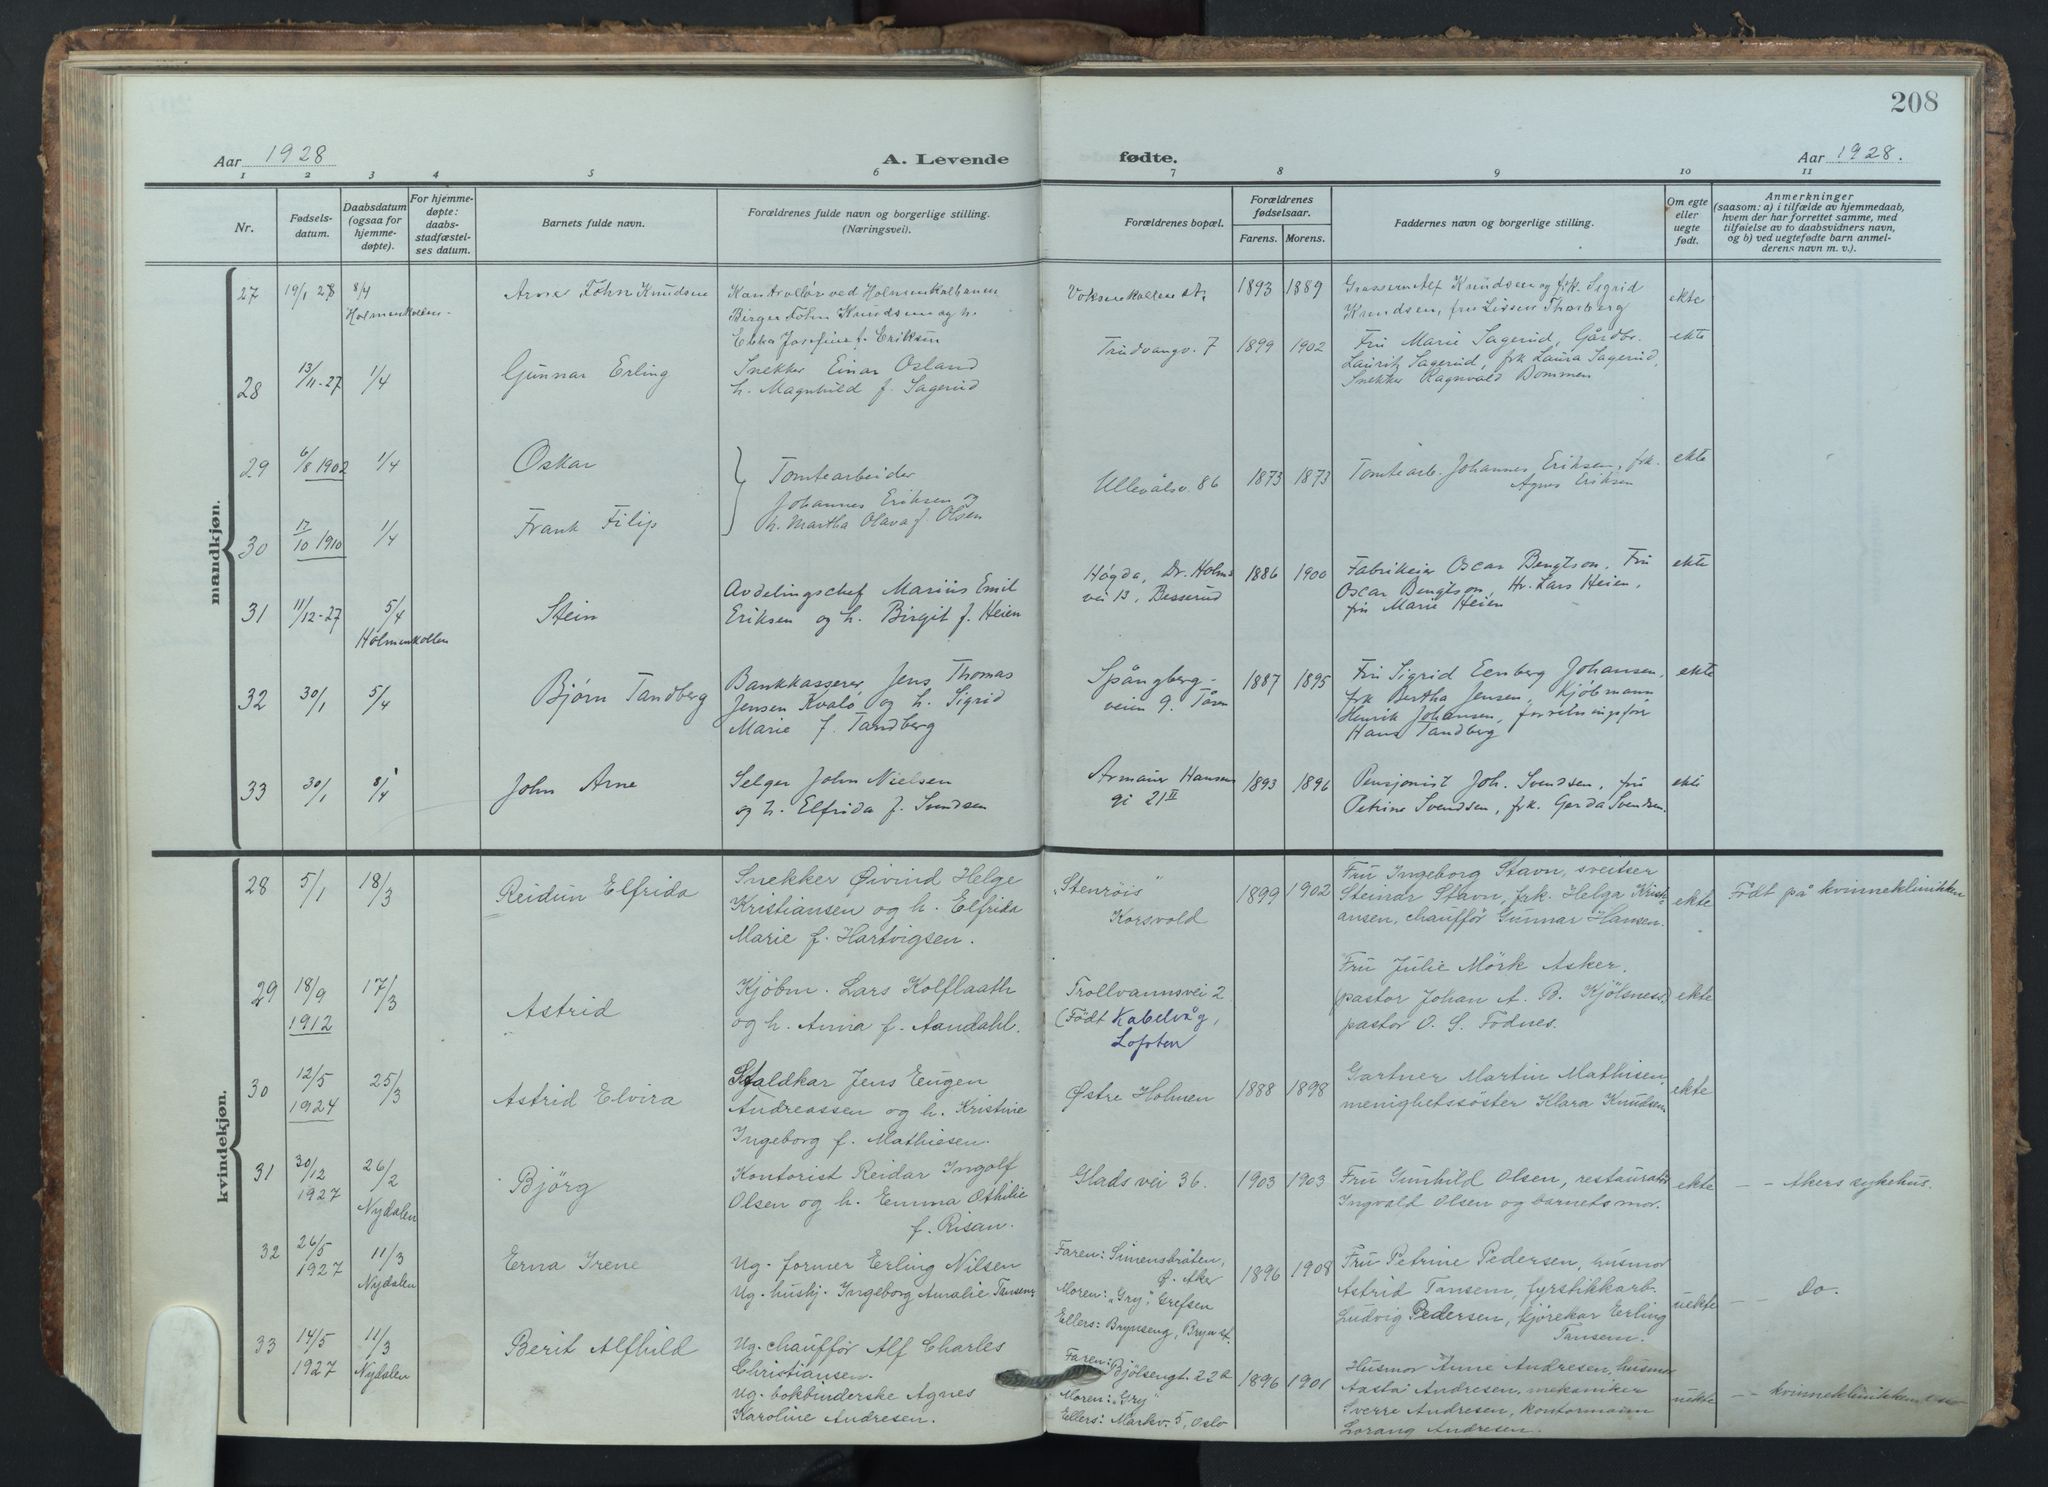 208
Aar 1928
A. Levende
fødte.
Aar 1928.
1 2 3 4 5 6 7 8 9 10 11
Nr.
Fødsels-
datum.
Daabsdatum
(ogsaa for
hjemme-
døpte).
For hjemme-
døpte:
daabs-
stadfæstel-
ses datum.
Barnets fulde navn.
Forældrenes fulde navn og borgerlige stilling.
(Næringsvei).
Forældrenes bopæl.
Forældrenes
fødselsaar.
Farens. Morens.
Faddernes navn og borgerlige stilling.
Om egte
eller
uegte
født.
Anmerkninger
(saasom: a) i tilfælde av hjemmedaab,
hvem der har forrettet samme, med
tilføielse av to daabsvidners navn,
og b) ved uegtefødte barn anmel-
derens navn m. v.).
mandkjøn.
27 19/1 28 8/4
Holmenkollen
Arne John Knudsen
Kontrollør ved Holmenkolbanen
Birger John Knudsen og h.
Ebba Josefine f. Eriksen
Voksenkollen st.
1893 1889
Grosserer Alf Knudsen og frk. Sigrid
Knudsen, fru Lissen Thorberg
ekte
28 13/11-27 1/4
Gunnar Erling
Snekker Einar Osland
h. Magnhild f. Sagerud
Trudvangv. 7
1899 1902
Fru Marie Sagerud, Gårdbr.
Lauritz Sagerud, frk Laura Sagerud,
Snekker Ragnvald Bommen
ekte
29 6/8 1902 1/4
Oskar
Tomtearbeider
Johannes Eriksen og
h. Martha Olava f. Olsen
Ullevålsv. 86
1873 1873
Tomtearb. Johannes Eriksen, frk.
Agnes Eriksen
ekte
30 17/10 1910 1/4
Frank Filip
31 11/12-27 5/4
Holmenkollen
Stein
Avdelingschef Marius Emil
Eriksen og h. Birgit f. Heien
Høgda, Dr. Holms
vei 13, Besserud
1886 1900
Fabrikeier Oscar Bengtson, Fru
Oscar Bengtson, Hr. Lars Heien,
fru Marie Heien
ekte
32 30/1 5/4
Bjørn Tandberg
Bankkasserer Jens Thomas
Jensen Kvalø og h. Sigrid
Marie f. Tandberg
Spångberg-
veien 9. Tåsen
1887 1895
Fru Sigrid Eenberg Johansen,
frk Bertha Jensen, Kjøbmann
Henrik Johansen, forretningsfører
Hans Tandberg
ekte
33 30/1 8/4
John Arne
Selger John Nielsen
og h. Elfrida f. Svendsen
Armauer Hansens
gt 21 II
1893 1896
Pensjonist Joh. Svendsen, fru
Petrine Svendsen, frk. Gerda Svendsen.
ekte
kvindekjøn.
28 5/1 18/3
Reidun Elfrida
Snekker Øivind Helge
Kristiansen og h. Elfrida
Marie f. Hartvigsen.
"Stenrøis"
Korsvold
1899 1902
Fru Ingeborg Stavn, sveitser
Steinar Stavn, frk. Helga Kristi-
ansen, chauffør Gunnar Hansen.
ekte
Født på kvinneklinikken
29 18/9 1912 17/3
Astrid
Kjøbm. Lars Kolflaath
og h. Anna f. Aandahl.
Trollvannsvei 2
(Født Kabelvåg,
Lofoten
Fru Julie Mörk Asker.
pastor Johan A. B. Kjølsnes
pastor O. S. Fodnes.
ekte
30 12/5 1924 25/3
Astrid Elvira
Staldkar Jens Eugen
Andreassen og h. Kristine
Ingeborg f. Mathiesen.
Østre Holmen
1888 1898
Gartner Martin Mathisen,
menighetssøster Klara Knudsen.
ekte
31 30/12 1927 26/2
Nydalen
Bjørg
Kontorist Reidar Ingolf
Olsen og h. Emma Othilie
f. Risan.
Glads vei 36.
1903 1903
Fru Gunhild Olsen, restauratør
Ingvald Olsen og barnets mor.
ekte
- - Akers sykehus.
32 26/5 1927 11/3
Nydalen
Erna Irene
Ug. former Erling Nilsen
Ug. hushj. Ingeborg Amalie Tansem
Faren: Simensbråten,
Ø. Aker
Moren: "Gry", Grefsen
Ellers: Brynseng, Bryn st.
1896 1908
Fru Petrine Pedersen, husmor
Astrid Tansem, fyrstikkarb.
Ludvig Pedersen, kjørekar Erling
Tansem.
uekte
- - Do.
33 14/5 1927 11/3
Nydalen
Berit Alfhild
Ug. chauffør Alf Charles
Christiansen.
Ug. bokbinderske Agnes
Karoline Andresen.
Faren:
Bjølsengt. 22a
Moren: "Gry"
Ellers: Markv. 5, Oslo
1896 1901
Husmor Anne Andresen, husmor
Aasta Andresen, mekaniker
Sverre Andresen, kontormann
Lorang Andresen.
uekte
- - kvinneklinikken Oslo